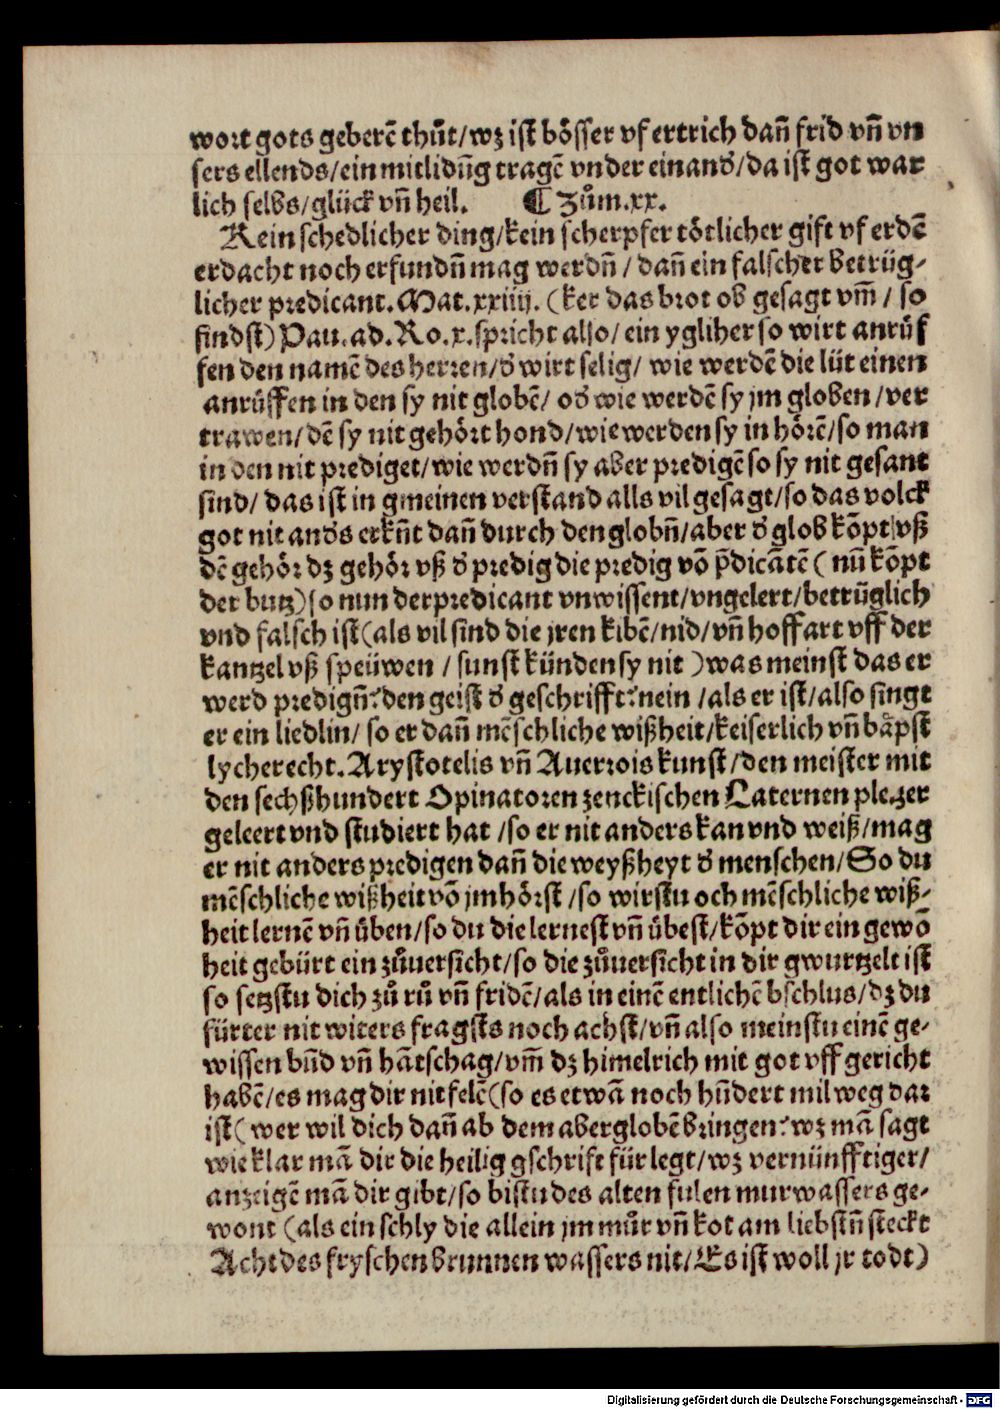 wort gots geberẽ thůt/wz ist bösser vf ertrich dañ frid vñ vn
sers ellends/ein mitlidũg tragẽ vnder einanď/da ist got war
lich selbs/glück vñ heil. ¶ Zům.xx.
Kein schedlicher ding/kein scherpfer tötlicher gift vf erdẽ
erdacht noch erfundñ mag werdñ / dañ ein falscher betrüg⸗
licher predicant. Mat.xxiiij. (ker das brot ob gesagt vm̃ / so
findst) Pau. ad. Ro.x. spricht also/ ein ygliher so wirt anrůf
fen den namẽ des herren/ď wirt selig/ wie werdẽ die lüt einen
anrůffen in den sy nit globẽ/ oď wie werdẽ sy jm globen /ver
trawen/dẽ sy nit gehört hond/wie werden sy in hörẽ/so man
in den nit prediget/wie werdñ sy aber predigẽ so sy nit gesant
sind/ das ist in gmeinen verstand alls vil gesagt/so das volck
got nit anďs erkñt dañ durch den globñ/aber ď glob kõpt vß
dẽ gehör dz gehör vß ď predig die predig võ p̃dicãtẽ ( nũ kõpt
der butz) so nun der predicant vnwissent/vngelert/betrüglich
vnd falsch ist(als vil sind die jren kibẽ/nid/vñ hoffart vff der
kantzel vß speüwen / sunst künden sy nit ) was meinst das er
werd predigñ? den geist ď geschrifft? nein /als er ist/also singt
er ein liedlin/ so er dañ mẽschliche wißheit/keiserlich vñ bäpst
lycherecht. Arystotelis vñ Auerrois kunst/den meister mit
den sechßhundert Opinatoren zenckischen Laternen pletzer
geleert vnd studiert hat /so er nit anders kan vnd weiß/mag
er nit anders predigen dañ die weyßheyt ď menschen/So du
mẽschliche wißheit võ jm hörst /so wirstu och mẽschliche wiß⸗
heit lernẽ vñ üben/so du die lernest vñ übest/kõpt dir ein gewõ
heit gebürt ein zůuersicht/so die zůuersicht in dir gwurtzelt ist
so setzstu dich zů rů vñ fridẽ/als in einẽ entlichẽ bschlus/dz du
fürter nit witers fragsts noch achst/vñ also meinstu einẽ ge⸗
wissen bũd vñ hãtschag/vm̃ dz himelrich mit got vff gericht
habẽ/es mag dir nit felẽ(so es etwã noch hũdert mil weg dar
ist( wer wil dich dañ ab dem aberglobẽ bringen? wz mã sagt
wie klar mã dir die heilig gschrift für legt/wz vernünfftiger/
anzeigẽ mã dir gibt/so bistu des alten fulen murwassers ge⸗
wont (als ein schly die allein jm můr vñ kot am liebstñ steckt
Acht des fryschen brunnen wassers nit/Es ist woll jr todt)
Digitalisierung gefördert durch die Deutsche Forschungsgemeinschaft - DFG